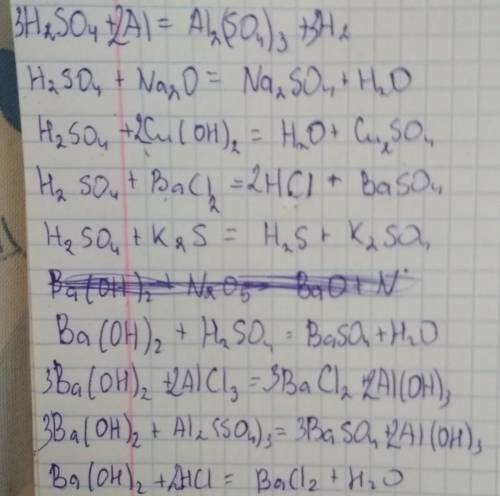 3H₂SO₄ + 2Al = Al₂(SO₄)₃ + 3H₂
H₂SO₄ + Na₂O = Na₂SO₄ + H₂O
H₂SO₄ + 2Cu(OH)₂ = H₂O + Cu₂SO₄
H₂SO₄ + BaCl₂ = 2HCl + BaSO₄
H₂SO₄ + K₂S = H₂S + K₂SO₄
Ba(OH)₂ + N₂O₅ = BaO + N
Ba(OH)₂ + H₂SO₄ = BaSO₄ + H₂O
3Ba(OH)₂ + 2AlCl₃ = 3BaCl₂ + 2Al(OH)₃
3Ba(OH)₂ + Al₂(SO₄)₃ = 3BaSO₄ + 2Al(OH)₃
Ba(OH)₂ + 2HCl = BaCl₂ + H₂O